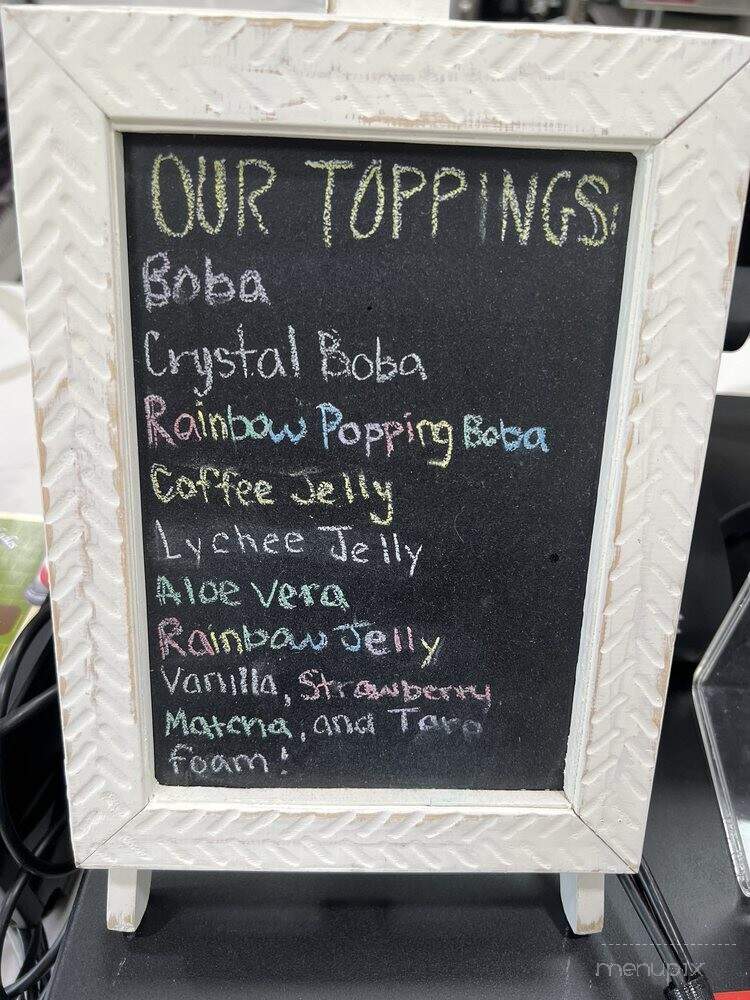 OUR TOPPINGS
Boba
Crystal Boba
Rainbow Popping Boba
Coffee Jelly
Lychee Jelly
Aloe Vera
Rainbow Jelly
Vanilla, Strawberry,
Matcha, and Taro
foam!
menupix